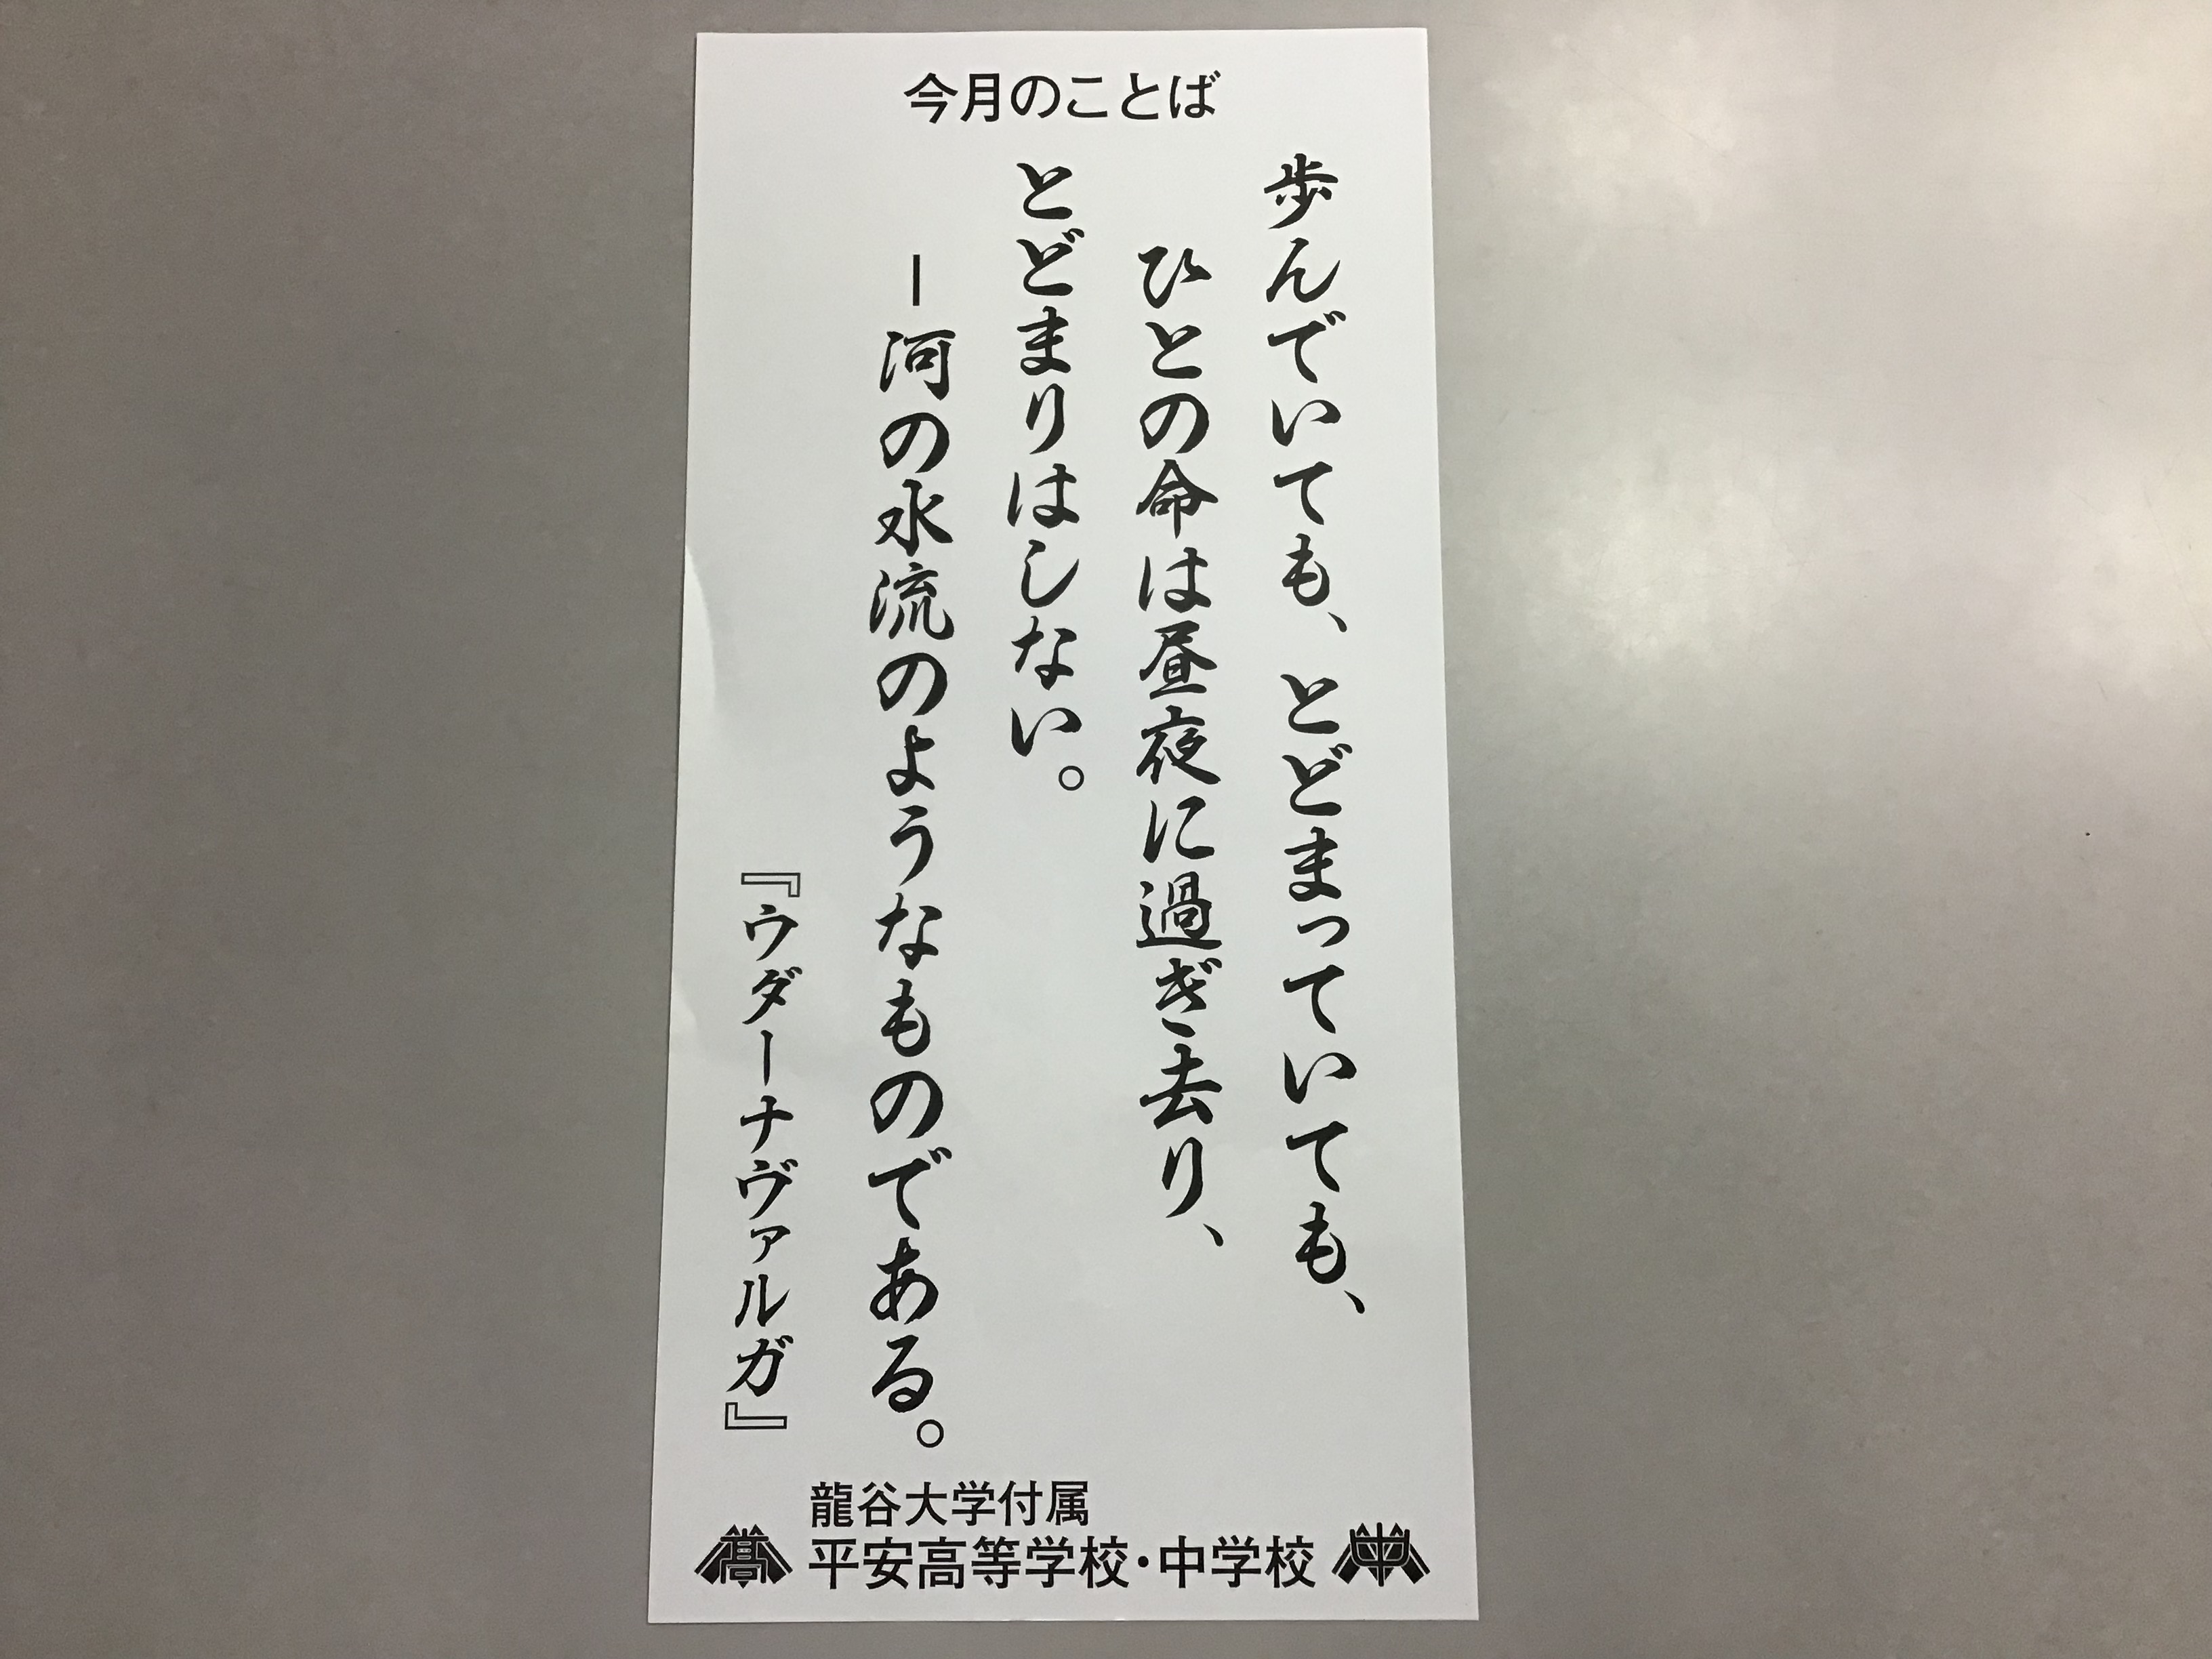 今月のことば
歩んでいても、とどまっていても、
ひとの命は昼夜に過ぎ去り、
とどまりはしない。
ー河の水流のようなものである。
『ウダーナヴァルガ』
龍谷大学付属
高 平安高等学校・中学校 中